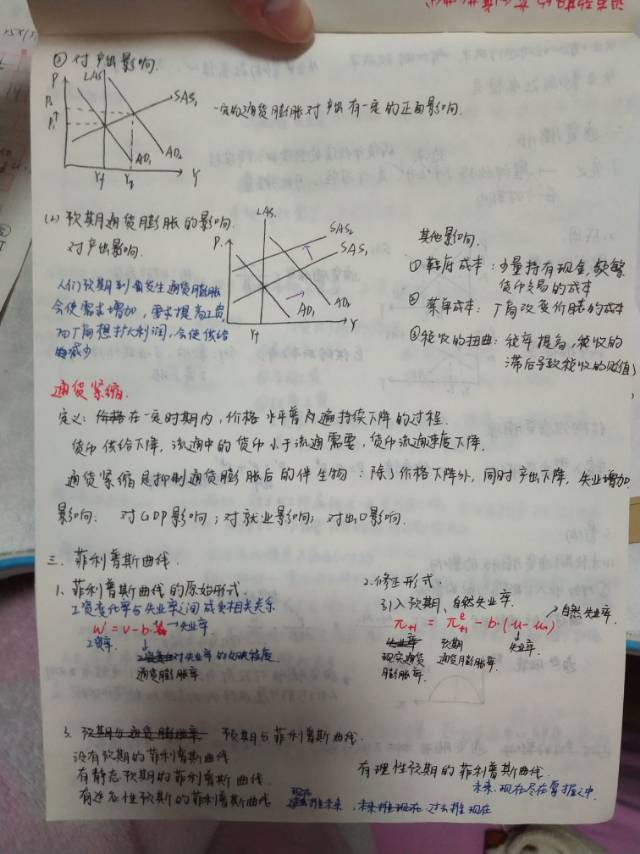 ② 对产出影响.
P
LAS
P₂
P₁
SAS₁
AD₁
AD₂
Yf
Y₂
Y
一定的通货膨胀对产出有一定的正面影响.
(2) 预期通货膨胀的影响.
对产出影响.
P.
LAS.
SAS₂
SAS₁
AD₁
AD₂
Yf
Y
人们预期到会发生通货膨胀
会使需求增加, 要求提高工资
而厂商想扩大利润, 会使供给
减少
其他影响.
① 鞋底成本: 少量持有现金, 频繁
货币交易的成本
② 菜单成本: 厂商改变价格的成本
③ 税收的扭曲: 税率提高, 税收的
滞后导致税收的贬值)
通货紧缩.
定义: 在一定时期内, 价格水平普遍持续下降的过程.
货币供给下降, 流通中的货币小于流通需要, 货币流通速度下降.
通货紧缩是抑制通货膨胀后的伴生物: 除了价格下降外, 同时产出下降, 失业增加
影响: 对GDP影响; 对就业影响; 对出口影响.
三. 菲利普斯曲线.
1. 菲利普斯曲线的原始形式.
工资变化率与失业率之间成负相关关系.
W = v - b·u → 失业率
工资率.
对失业率的反映程度
通货膨胀率.
2. 修正形式.
引入预期、自然失业率.
π₊₁ = πᵉ₊₁ - b·(u - uₙ)
自然失业率.
失业率
现实通货
膨胀率.
预期
通货膨胀率.
失业率.
3. 预期与通货膨胀率 预期与菲利普斯曲线.
没有预期的菲利普斯曲线
有静态预期的菲利普斯曲线.
有适应性预期的菲利普斯曲线
现在
推未来, 未来推现在 过去推现在
有理性预期的菲利普斯曲线.
未来、现在尽在掌握之中.